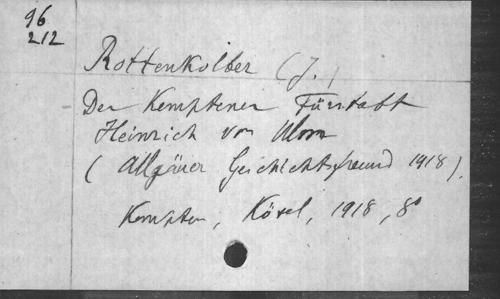 96
212
Rottenkolber (J.)
Der Kemptener Fürstabt
Heinrich von Ulm
(Allgäuer Geschichtsfreund 1918).
Kempten, Kösel, 1918, 8°